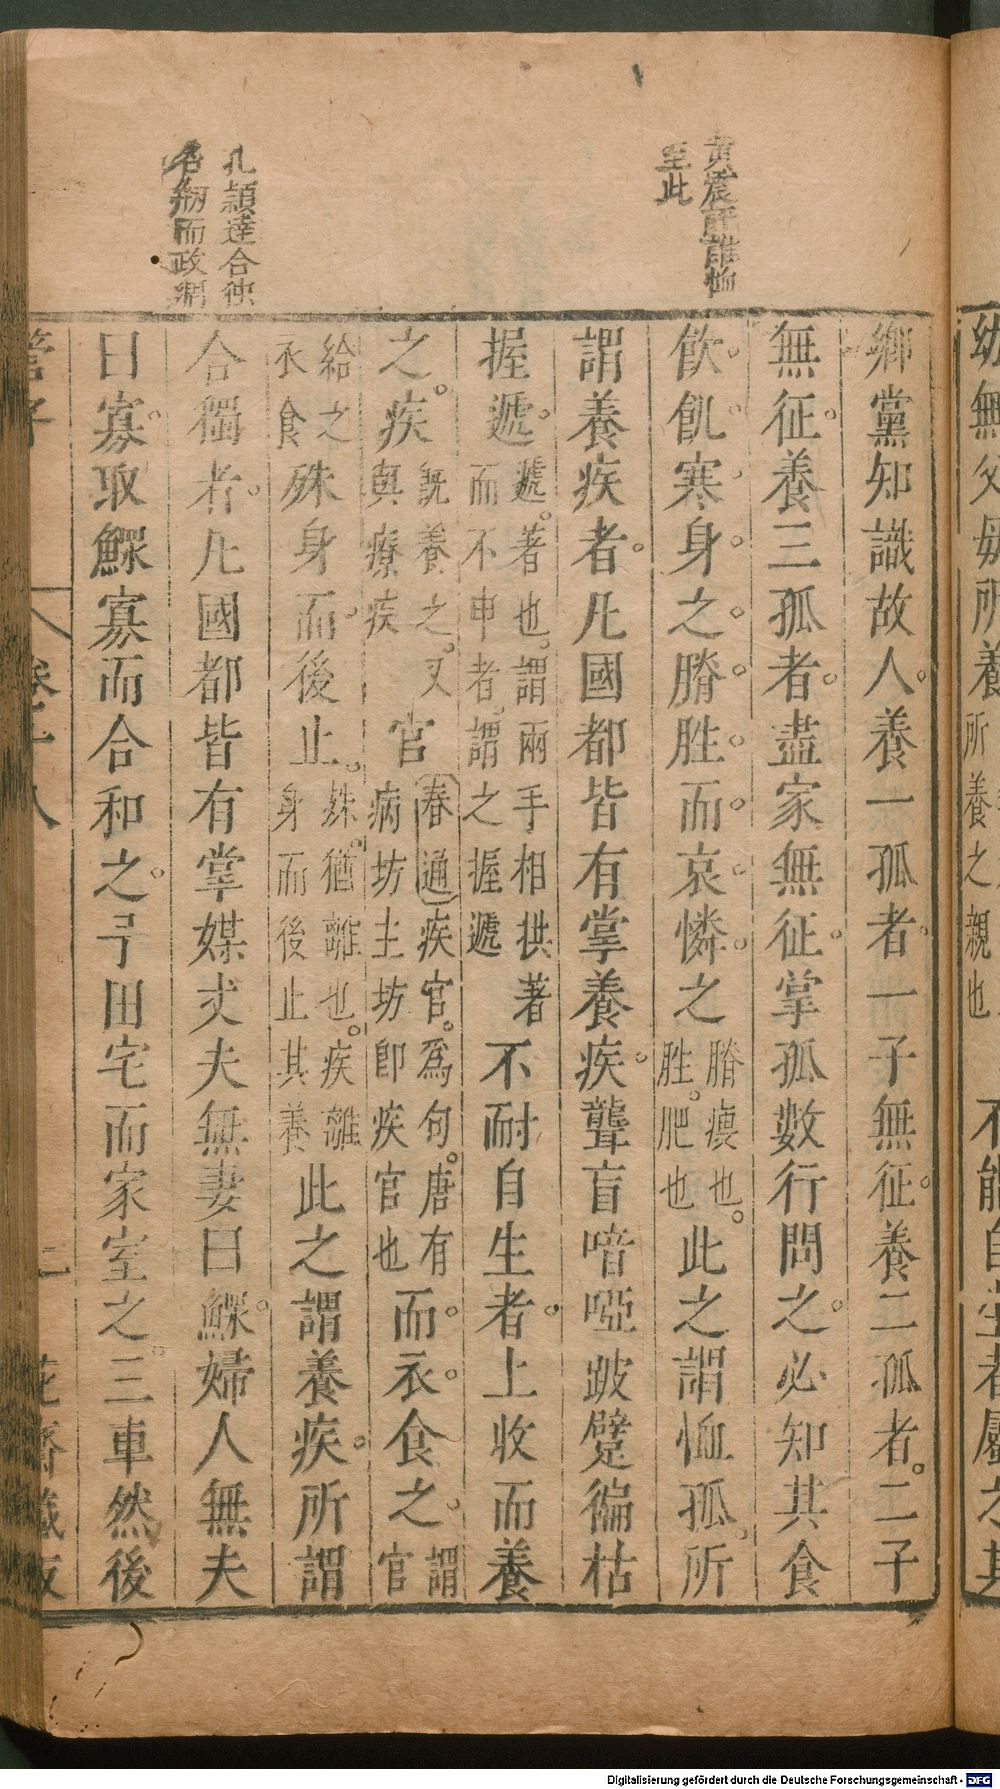 黄震評誰恤
至此
孔穎達合使
鄉黨知識故人養一孤者一子無征養二孤者二子
無征養三孤者盡家無征掌孤數行問之必知其食
飲飢寒身之膌胜而哀憐之膌瘦也胜肥也此之謂恤孤所
謂養疾者凡國都皆有掌養疾聾盲喑啞跛躄偏枯
握遞遞著也謂兩手相拱著而不申者謂之握遞不耐自生者上收而養
之疾既養之又與療疾官春通疾官爲句唐有病坊主坊卽疾官也而衣食之謂官
給之衣食殊身而後止殊猶離也疾離身而後止其養此之謂養疾所謂
合獨者凡國都皆有掌媒丈夫無妻曰鰥婦人無夫
曰寡取鰥寡而合和之予田宅而家室之三車然後
管子
卷十八
二
花齋藏板
幼無父母所養所養之親也不能自生者屬之其
Digitalisierung gefördert durch die Deutsche Forschungsgemeinschaft - DFG